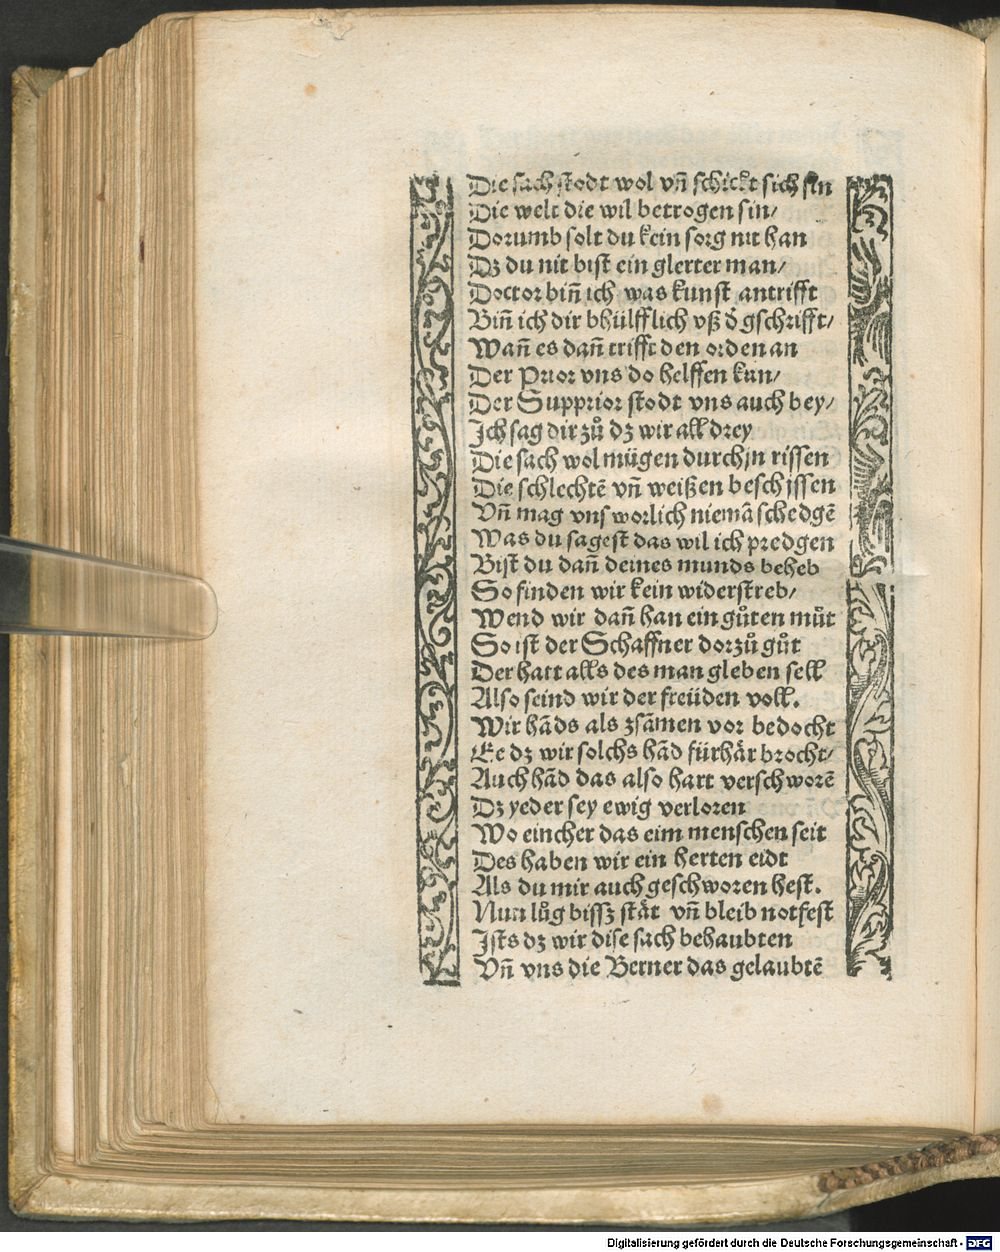 Die sach stodt wol vn̄ schickt sich fin
Die welt die wil betrogen sin/
Dorumb solt du kein sorg nit han
Dz du nit bist ein glerter man/
Doctor bin̄ ich was kunst antrifft
Bin̄ ich dir bhülfflich vß d̕ gschrifft/
Wan̄ es dan̄ trifft den orden an
Der Prior vns do helffen kan/
Der Supprior stodt vns auch bey/
Ich sag dir zů dz wir all drey
Die sach wol mügen durchjn rissen
Die schlechtē vn̄ weißen beschissen
Vn̄ mag vns worlich niemā schedgē
Was du sagest das wil ich predgen
Bist du dan̄ deines munds beheb
So finden wir kein widerstreb/
Wend wir dan̄ han ein gůten můt
So ist der Schaffner dorzů gůt
Der hatt alls des man gleben sell
Also seind wir der freüden voll.
Wir hāds als zsāmen vor bedocht
Ee dz wir solchs hād fürhär brocht/
Auch hād das also hart verschworē
Dz yeder sey ewig verloren
Wo eincher das eim menschen seit
Des haben wir ein herten eidt
Als du mir auch geschworen hest.
Nun lůg bissz stät vn̄ bleib notfest
Ists dz wir dise sach behaubten
Vn̄ vns die Berner das gelaubtē
Digitalisierung gefördert durch die Deutsche Forschungsgemeinschaft - DFG